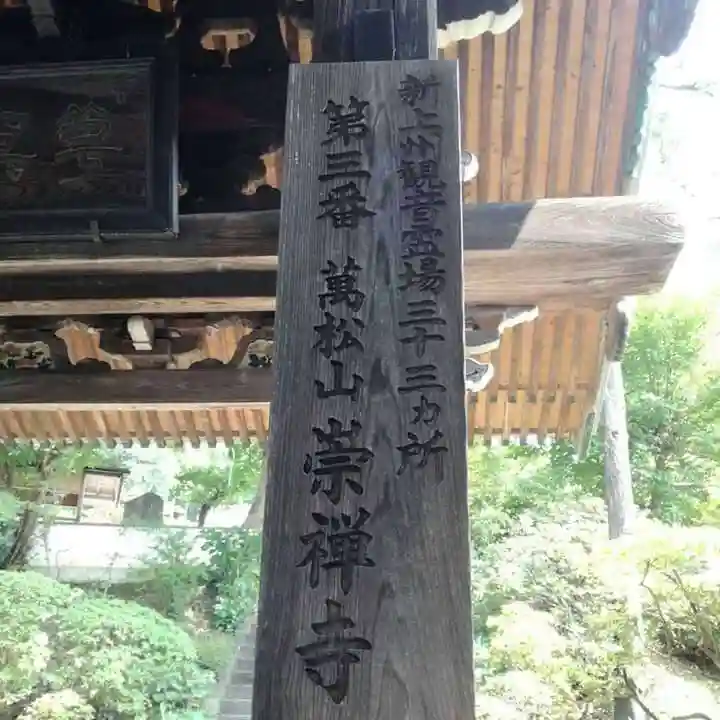 新上州観音霊場三十三カ所
第三番 萬松山 崇禅寺